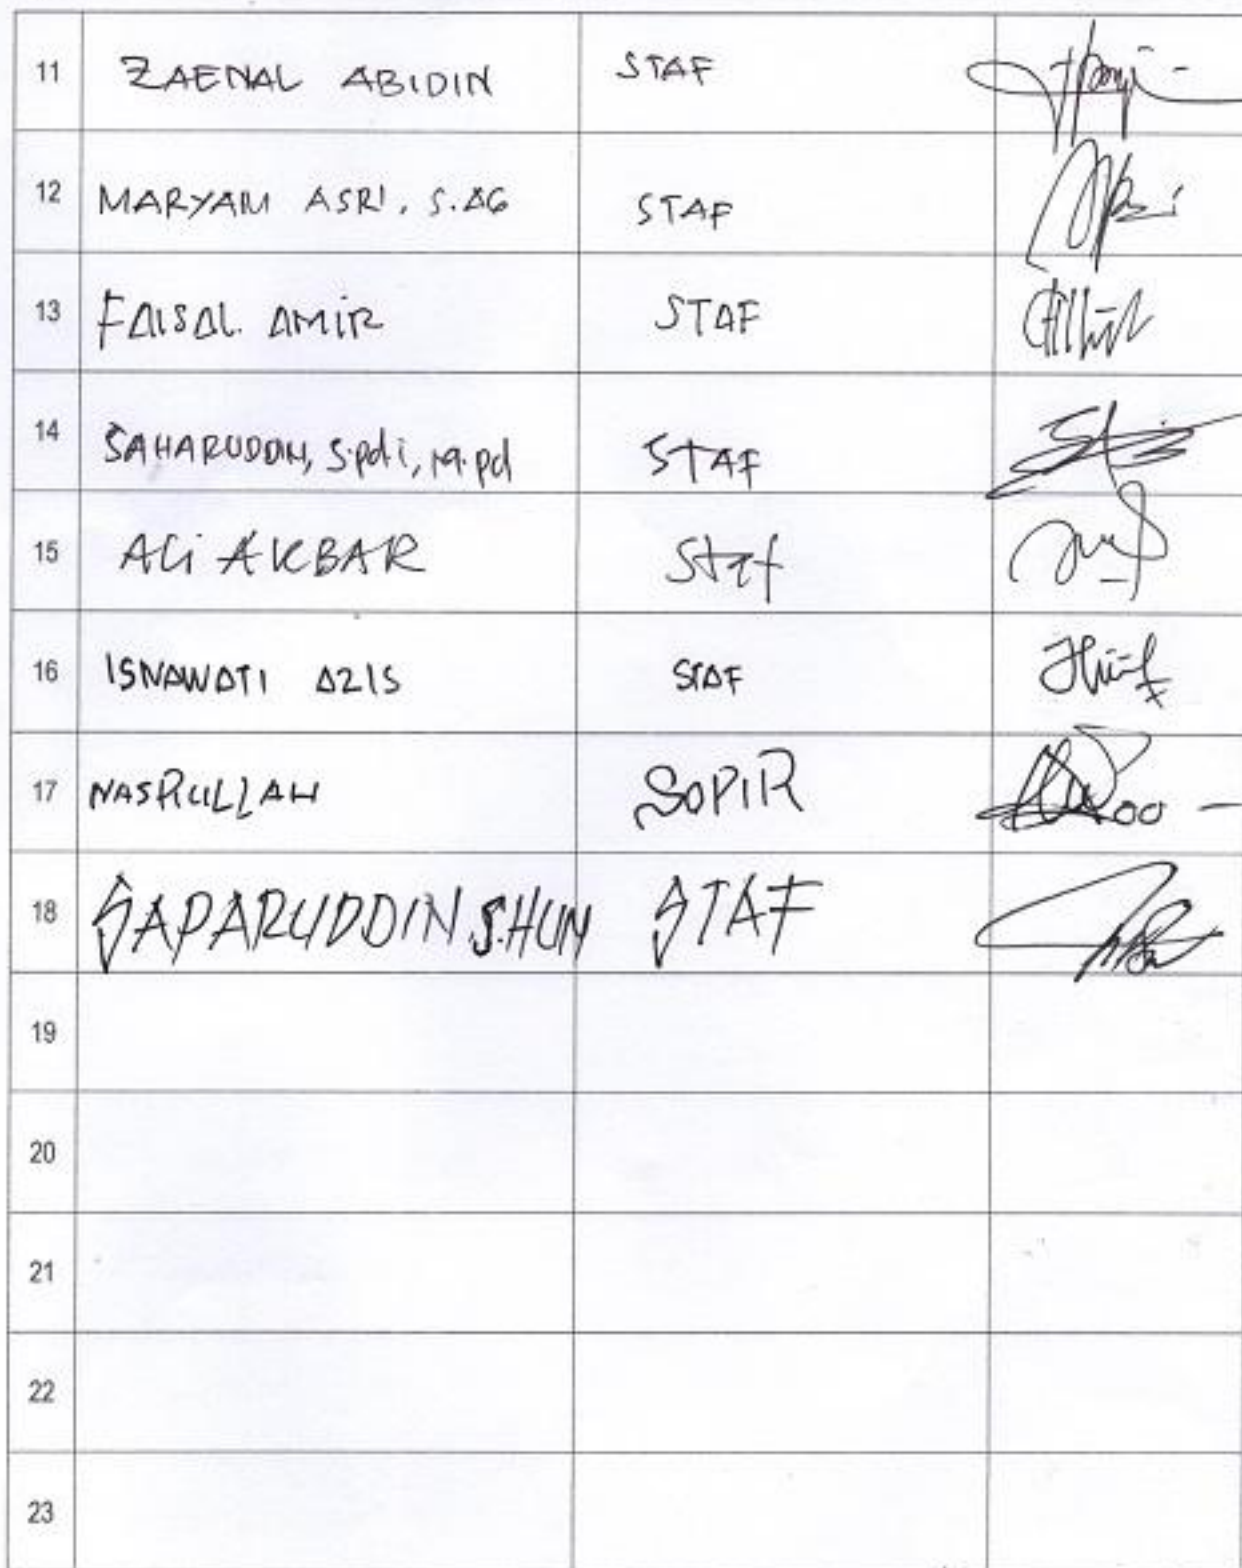 11 ZAENAL ABIDIN STAF
12 MARYAM ASRI, S.AG STAF
13 FAISAL AMIR STAF
14 SAHARUDDIN, S.pdi, M.pd STAF
15 ALi AKBAR Staf
16 ISNAWATI AZIS STAF
17 NASRULLAH SOPIR
18 SAPARUDDIN S.HUM STAF
19
20
21
22
23